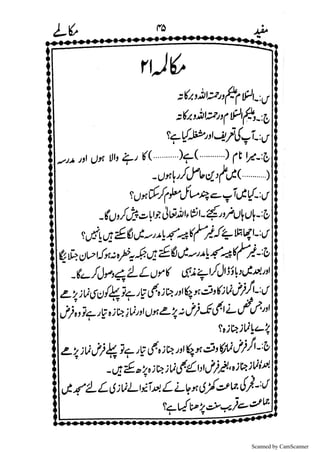 مفید ۴۵ مکالمے
مکالمہ ۲۱
س:۔ السلام علیکم ورحمتہ اللہ وبرکاتہ
ج:۔ وعلیکم السلام ورحمتہ اللہ وبرکاتہ
س:۔ آپ کی تعریف اور مشغلہ کیا ہے؟
ج:۔ میرا نام (............) ہے (............) کا رہنے والا ہوں اور مدرسہ
(............) میں علم دین حاصل کر رہا ہوں۔
س:۔ کیا میں آپ سے چند مسائل معلوم کر سکتا ہوں؟
ج:۔ ہاں ہاں ضرور کیجئے۔ انشاء اللہ تعالیٰ جوابات پیش کروں گا۔
س:۔ اچھا بتلایئے کہ غیر مسلم کا پیسہ مسجد یا مدرسہ میں لگا سکتے ہیں یا نہیں؟
ج:۔ غیر مسلم کا پیسہ مسجد یا مدرسہ میں لگا سکتے ہیں جبکہ یہ خطرہ نہ ہو کہ احسان جتلائیگا
اور بعد میں دباؤ ڈال کر اپنے مذہبی کاموں کے لئے پیسے وصول کرے گا۔
س:۔ اگر فرض نماز کا وقت ہو چکا اور جنازہ بھی تیار ہے تو پہلے کون سی نماز پڑھے
اور جس شخص نے ابھی تک فرض نہ پڑھے ہوں اور نماز جنازہ تیار ہے تو وہ فرض
پڑھے یا نماز جنازہ؟
ج:۔ اگر فرض نماز کا وقت ہو چکا اور جنازہ بھی تیار ہے تو پہلے فرض نماز پڑھے
بعدہٗ نماز جنازہ، بغیر فرض ادا کئے بھی نماز جنازہ پڑھ سکتے ہیں۔
س:۔ فجر کی جماعت کھڑی ہو جانے کے بعد آنیوالے نمازی کے لئے مسجد میں
جماعت سے قریب سنت پڑھنا کیسا ہے؟
Scanned by CamScanner